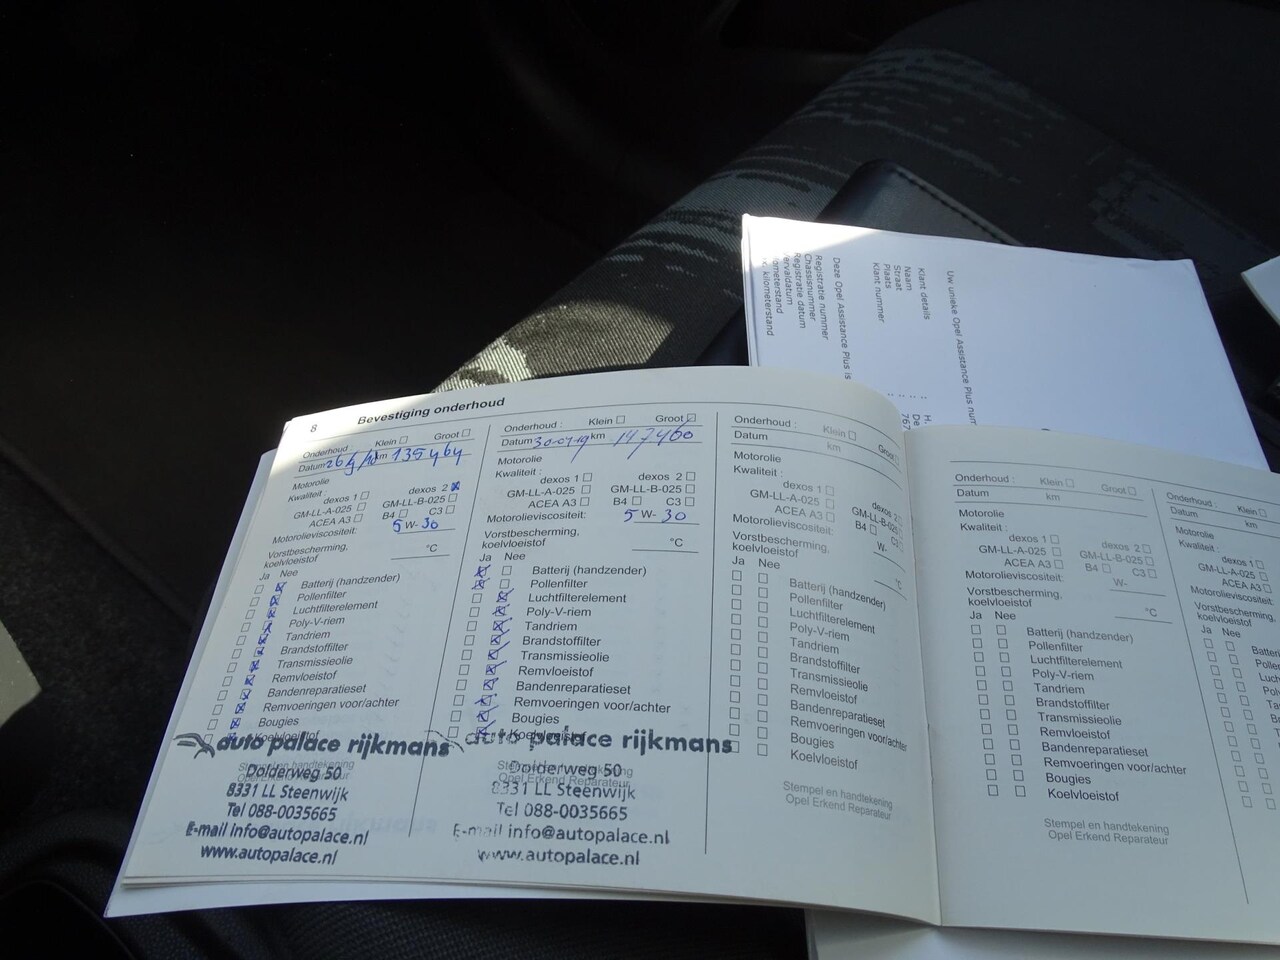 8 Bevestiging onderhoud
Onderhoud : Klein Groot
Datum km 135464
Motorolie
Kwaliteit : dexos 1 dexos 2
GM-LL-A-025 GM-LL-B-025
ACEA A3 B4 C3
Motorolieviscositeit: 5 W- 30
Vorstbescherming, koelvloeistof °C
Ja Nee
Batterij (handzender)
Pollenfilter
Luchtfilterelement
Poly-V-riem
Tandriem
Brandstoffilter
Transmissieolie
Remvloeistof
Bandenreparatieset
Remvoeringen voor/achter
Bougies
Koelvloeistof
Stempel en handtekening
Opel Erkend Reparateur
auto palace rijkmans
Dolderweg 50
8331 LL Steenwijk
Tel 088-0035665
E-mail info@autopalace.nl
www.autopalace.nl
Onderhoud : Klein Groot
Datum 30-07-19 km 147460
Motorolie
Kwaliteit :
dexos 1 dexos 2
GM-LL-A-025 GM-LL-B-025
ACEA A3 B4 C3
Motorolieviscositeit:
5 W- 30
Vorstbescherming,
koelvloeistof °C
Ja Nee
Batterij (handzender)
Pollenfilter
Luchtfilterelement
Poly-V-riem
Tandriem
Brandstoffilter
Transmissieolie
Remvloeistof
Bandenreparatieset
Remvoeringen voor/achter
Bougies
Koelvloeistof
Stempel en handtekening
Opel Erkend Reparateur
auto palace rijkmans
Dolderweg 50
8331 LL Steenwijk
Tel 088-0035665
E-mail info@autopalace.nl
www.autopalace.nl
Onderhoud : Klein Groot
Datum km
Motorolie
Kwaliteit :
dexos 1 dexos 2
GM-LL-A-025 GM-LL-B-025
ACEA A3 B4 C3
Motorolieviscositeit:
W-
Vorstbescherming,
koelvloeistof °C
Ja Nee
Batterij (handzender)
Pollenfilter
Luchtfilterelement
Poly-V-riem
Tandriem
Brandstoffilter
Transmissieolie
Remvloeistof
Bandenreparatieset
Remvoeringen voor/achter
Bougies
Koelvloeistof
Stempel en handtekening
Opel Erkend Reparateur
Onderhoud : Klein Groot
Datum km
Motorolie
Kwaliteit :
dexos 1 dexos 2
GM-LL-A-025 GM-LL-B-025
ACEA A3 B4 C3
Motorolieviscositeit: W-
Vorstbescherming,
koelvloeistof °C
Ja Nee
Batterij (handzender)
Pollenfilter
Luchtfilterelement
Poly-V-riem
Tandriem
Brandstoffilter
Transmissieolie
Remvloeistof
Bandenreparatieset
Remvoeringen voor/achter
Bougies
Koelvloeistof
Stempel en handtekening
Opel Erkend Reparateur
Onderhoud : Klein
Datum km
Motorolie
Kwaliteit :
dexos 1
GM-LL-A-025
ACEA A3
Motorolieviscositeit:
Vorstbescherming,
koelvloeistof
Ja Nee
Uw unieke Opel Assistance Plus num
Klant details
Naam
Straat
Plaats
Klant nummer
Deze Opel Assistance Plus is
Registratie nummer
Chassisnummer
Registratie datum
kilometerstand